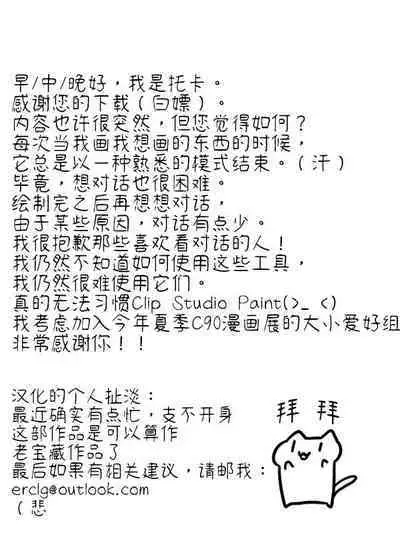 早/中/晚好，我是托卡。
感谢您的下载（白嫖）。
内容也许很突然，但您觉得如何？
每次当我画我想画的东西的时候，
它总是以一种熟悉的模式结束。（汗）
毕竟，想对话也很困难。
绘制完之后再想想对话，
由于某些原因，对话有点少。
我很抱歉那些喜欢看对话的人！
我仍然不知道如何使用这些工具，
我仍然很难使用它们。
真的无法习惯Clip Studio Paint(>_ <)
我考虑加入今年夏季C90漫画展的大小爱好组
非常感谢你！！
汉化的个人扯淡：
最近确实有点忙，支不开身
这部作品是可以算作
老宝藏作品了
最后如果有相关建议，请邮我：
erclg@outlook.com
（悲
拜 拜